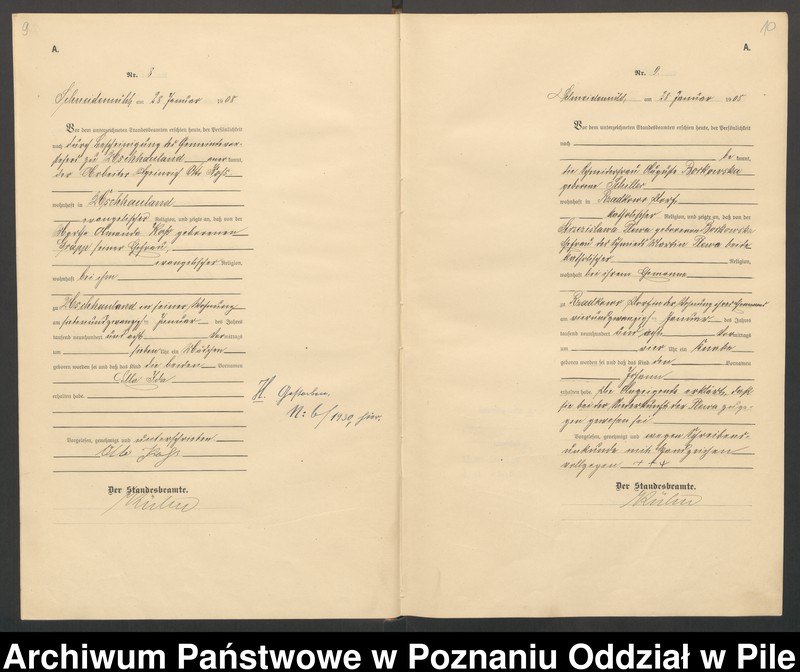 9
A.
Nr. 8
Schneidemühl, am 28 Januar 1908
Vor dem unterzeichneten Standesbeamten erschien heute, der Persönlichkeit
nach durch Bescheinigung des Gemeindevor-
stehers zu Uschhauland anerkannt,
der Arbeiter Heinrich Otto
wohnhaft in Uschhauland
evangelischer Religion, und zeigte an, daß von der
Amanda geborenen
seiner Ehefrau
evangelischer Religion,
wohnhaft bei ihm
zu Uschhauland in seiner Wohnung
am siebenundzwanzigsten Januar des Jahres
tausend neunhundert und acht mittags
um sieben Uhr ein Mädchen
geboren worden sei und daß das Kind die beiden Vornamen
Ella Ida
erhalten habe
Vorgelesen, genehmigt und unterschrieben
Otto
Der Standesbeamte.
H. Gestorben.
N: 6/1930, hier.
10
A.
Nr. 9
Schneidemühl, am 28 Januar 1908
Vor dem unterzeichneten Standesbeamten erschien heute, der Persönlichkeit
nach
bekannt,
die Schneiderfrau Auguste Borkowska
geborene Schiller
wohnhaft in Radkowo Dorf
katholischer Religion, und zeigte an, daß von der
geborenen Borkowska
Ehefrau des Schmieds Martin beide
katholischer Religion,
wohnhaft bei ihrem Ehemanne
zu Radkowo Dorf in der Wohnung ihres Ehemannes
am vierundzwanzigsten Januar des Jahres
tausend neunhundert und acht mittags
um vier Uhr ein Knabe
geboren worden sei und daß das Kind den Vornamen
Johann
erhalten habe. Die Anzeigende erklärte, daß
sie bei der Niederkunft der zuge-
gen gewesen sei.
Vorgelesen, genehmigt und wegen Schreibens-
unkunde mit Handzeichen
vollzogen +++
Der Standesbeamte.
Archiwum Państwowe w Poznaniu Oddział w Pile